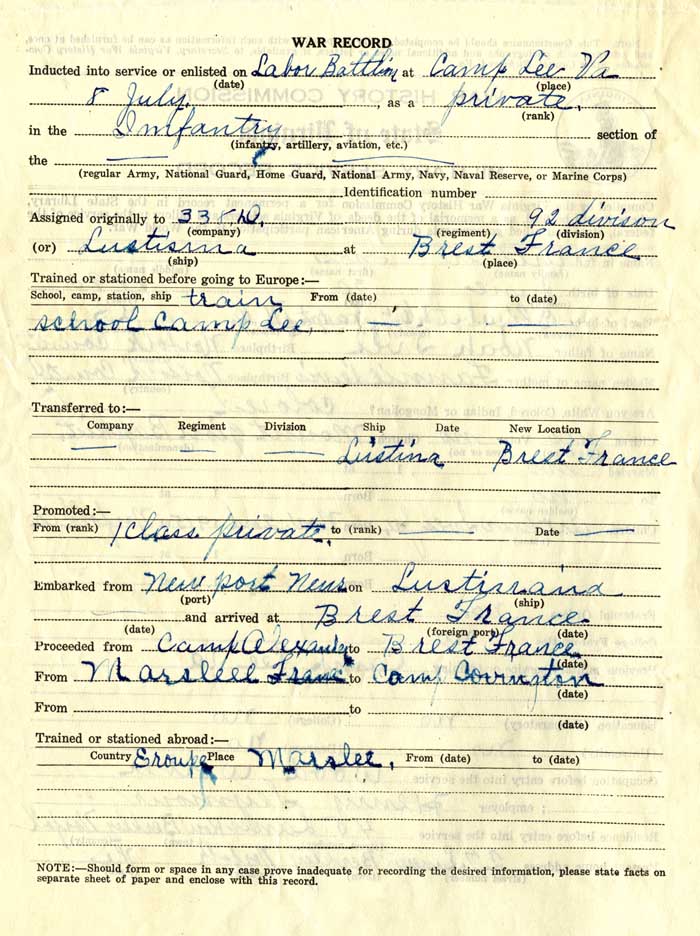 WAR RECORD
Inducted into service or enlisted on Labor Battlion at Camp Lee Va
(date) (place)
8 July. , as a private.
(rank)
in the Imfantry section of
(infantry, artillery, aviation, etc.)
the
(regular Army, National Guard, Home Guard, National Army, Navy, Naval Reserve, or Marine Corps)
Identification number
Assigned originally to 338 D. 92 divison
(company) (regiment) (division)
(or) Lustisma at Brest France
(ship) (place)
Trained or stationed before going to Europe:—
School, camp, station, ship train From (date) to (date)
school Camp Lee,
Transferred to:—
Company Regiment Division Ship Date New Location
Listina Brest France
Promoted:—
From (rank) 1 class private. to (rank) Date
Embarked from New port News on Lustinana
(port) (ship)
and arrived at Brest France
(date) (foreign port) (date)
Proceeded from Camp Alexander to Brest France
(date)
From Marsleel France to Camp Covington
(date)
From to
(date)
Trained or stationed abroad:—
Country Eroupe Place Marslee, From (date) to (date)
NOTE:—Should form or space in any case prove inadequate for recording the desired information, please state facts on
separate sheet of paper and enclose with this record.